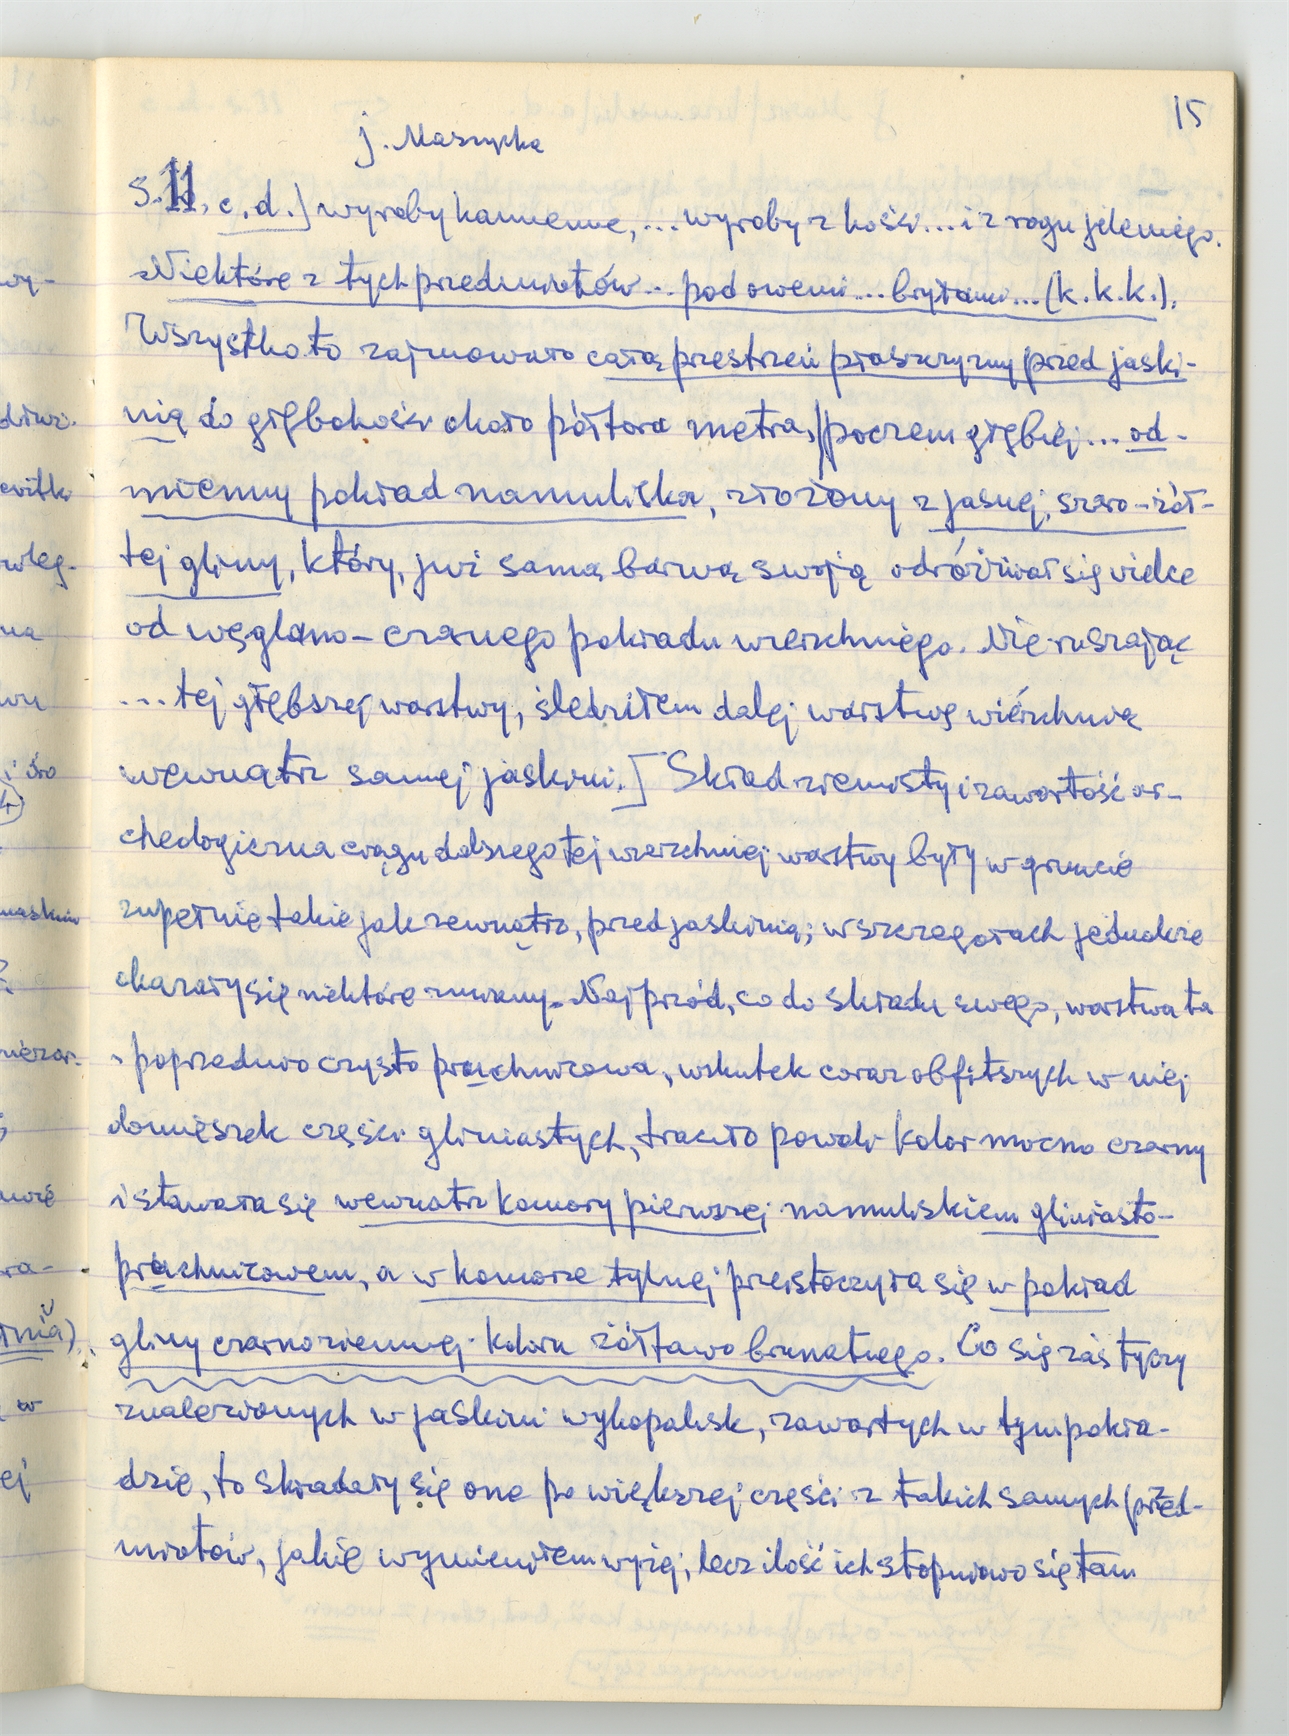 15
j. Maszycka
S. 11, c.d.] wyroby kamienne, ... wyroby z kości ... i z rogu jeleniego.
Niektóre z tych przedmiotów ... pod owemi ... bryłami ... (k.k.k.).
Wszystko to zajmowało całą przestrzeń płaszczyzny przed jaski-
nią do głębokości około półtora metra, // poczem głębiej ... od-
mienny pokład namuliska, złożony z jasnej, szaro-żół-
tej gliny, który, już samą barwą swoją odróżniał się wielce
od węglano-czarnego pokładu wierzchniego. Nie ruszając
... tej głębszej warstwy, śledziłem dalej warstwę wierzchnią
wewnątrz samej jaskini.] Skład ziemisty i zawartość ar-
cheologiczna ciągu dalszego tej wierzchniej warstwy były w gruncie
zupełnie takie jak zewnątrz, przed jaskinią; w szczegółach jednakże
okazały się niektóre zmiany. Najprzód, co do składu swego, warstwa ta
poprzednio czysto próchnicowa, wskutek coraz obfitszych w niej
domieszek części gliniastych, traciła powoli kolor mocno czarny
i stawała się wewnątrz komory pierwszej namuliskiem gliniasto-
próchnicowem, a w komorze tylnej przeistoczyła się w pokład
gliny czarnoziemnej koloru żółtawo brunatnego. Co się zaś tyczy
znalezionych w jaskini wykopalisk, zawartych w tym pokła-
dzie, to składały się one po większej części z takich samych przed-
miotów, jakie wymieniłem wyżej; lecz ilość ich stopniowo się tam